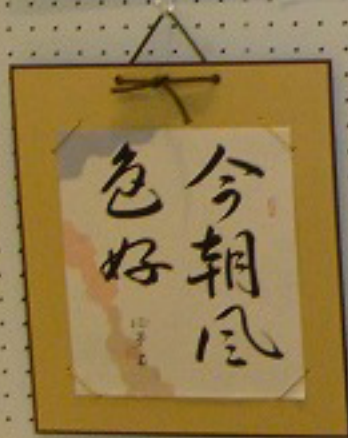 今朝風
色好